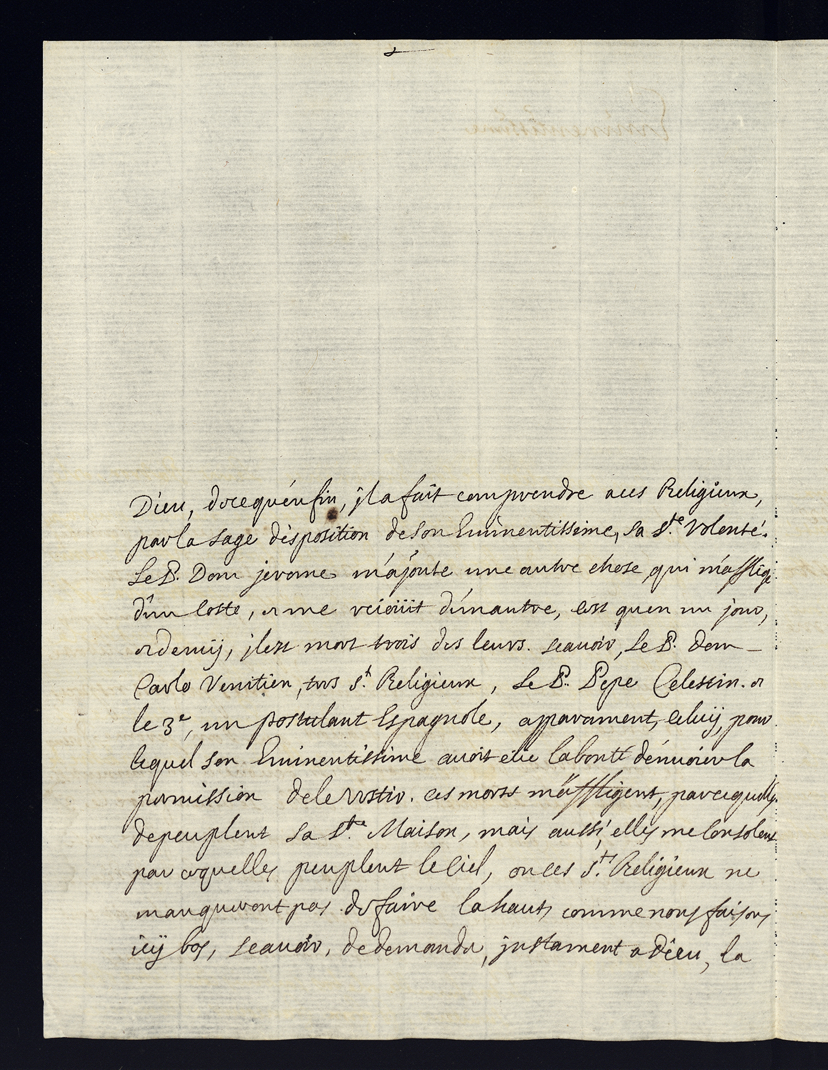 Dieu, dece quénfin, jl a fait comprendre a ces Religieux,
par la sage disposition de son Eminentissime, sa s.te Volenté.
Le P. Dom jerome m'ajoute une autre chose, qui m'afflige
d'un costé, et me d'un autre, c'est quen un jour,
et demij, jl est mort trois des leurs. scauoir, Le P. Dom
Carlo Venitien, tres s.t Religieux, Le P. Pepe Celestin. et
le 3.e, un postulant Espagnole, apparament, celuij, pour
lequel son Eminentissime auoit eüe la bonté dénuoier la
permission de le vestir. ces morts m'affligent, parcequelles
depeuplent sa s.te Maison, mais aussi, elles me consolent
par cequelles peuplent le Ciel, ou ces s.ts Religieux ne
manqueront pas de faire la haut, comme nous faisons
icij bas, scauoir, de demander, justament a Dieu, la